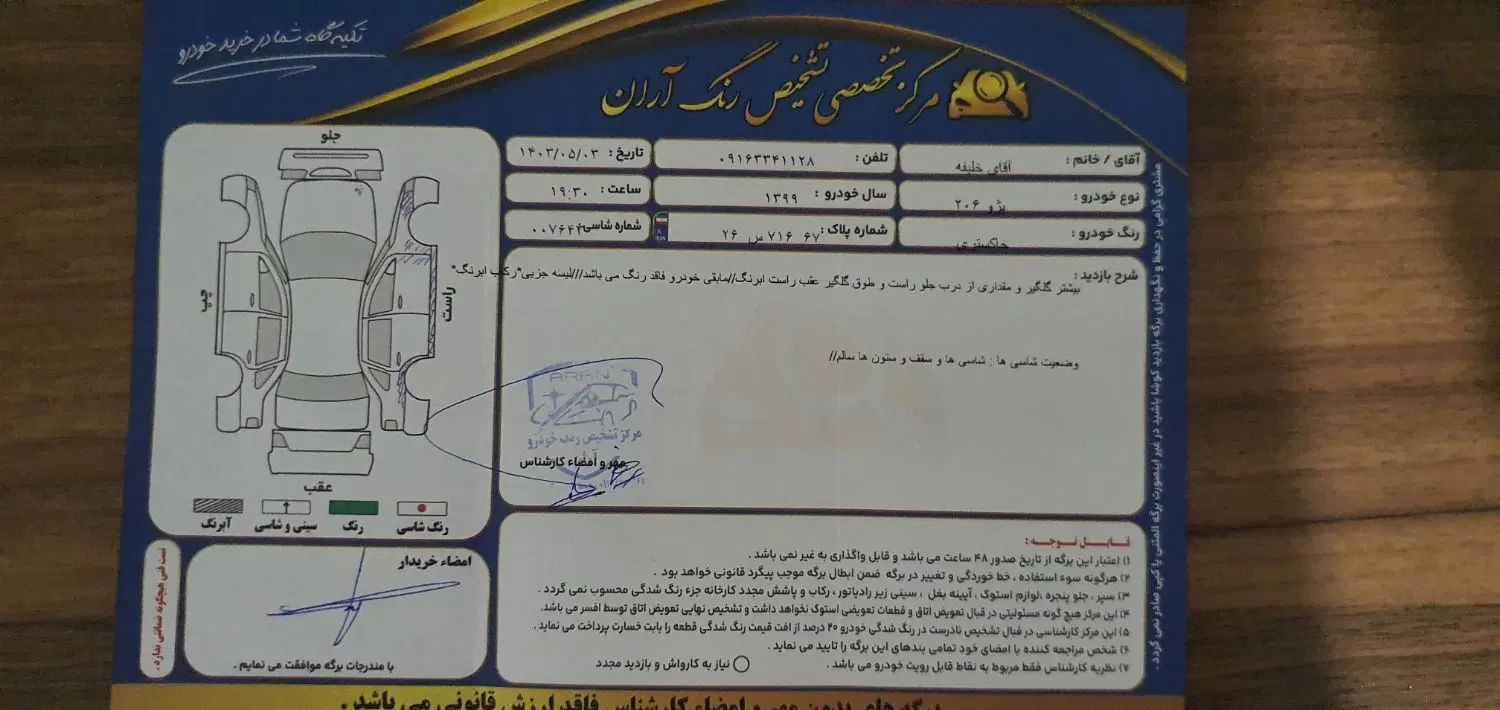 تکیه گاه شما در خرید خودرو
مرکز تخصصی تشخیص رنگ آران
آقای / خانم : آقای خلیفه
تلفن : ۰۹۱۶۳۳۴۱۱۲۸
تاریخ : ۱۴۰۳/۰۵/۰۳
نوع خودرو : پژو ۲۰۶
سال خودرو : ۱۳۹۹
ساعت : ۱۹:۳۰
رنگ خودرو : خاکستری
شماره پلاک : ۶۷ ۷۱۶ س ۲۶
شماره شاسی: ۰۰۷۶۴۴
شرح بازدید :
بیشتر گلگیر و مقداری از درب جلو راست و طوق گلگیر عقب راست ابرنگ//مابقی خودرو فاقد رنگ می باشد///لیسه جزیی*رکاب ابرنگ*
وضعیت شاسی ها : شاسی ها و سقف و ستون ها سالم//
ARAN
مرکز تشخیص رنگ خودرو
مهر و امضاء کارشناس
جلو
راست
چپ
عقب
رنگ شاسی
رنگ
سینی و شاسی
آبرنگ
قابل توجه :
۱) اعتبار این برگه از تاریخ صدور ۴۸ ساعت می باشد و قابل واگذاری به غیر نمی باشد .
۲) هرگونه سوء استفاده ، خط خوردگی و تغییر در برگه ضمن ابطال برگه موجب پیگرد قانونی خواهد بود .
۳) سپر ، جلو پنجره ،لوازم استوک ، آیینه بغل ، سینی زیر رادیاتور ، رکاب و پاشش مجدد کارخانه جزء رنگ شدگی محسوب نمی گردد .
۴) این مرکز هیچ گونه مسئولیتی در قبال تعویض اتاق و قطعات تعویضی استوک نخواهد داشت و تشخیص نهایی تعویض اتاق توسط افسر می باشد.
۵) این مرکز کارشناسی در قبال تشخیص نادرست در رنگ شدگی خودرو ۲۰ درصد از افت قیمت رنگ شدگی قطعه را بابت خسارت پرداخت می نماید .
۶) شخص مراجعه کننده با امضای خود تمامی بندهای این برگه را تایید می نماید .
۷) نظریه کارشناس فقط مربوط به نقاط قابل رویت خودرو می باشد .
نیاز به کارواش و بازدید مجدد
امضاء خریدار
با مندرجات برگه موافقت می نمایم .
تست فنی هیچگونه ضمانتی ندارد .
مشتری گرامی در حفظ و نگهداری برگه بازدید کوشا باشید در غیر اینصورت برگه المثنی یا کپی صادر نمی گردد .
برگه های بدون مهر و امضاء کارشناس فاقد ارزش قانونی می باشد .